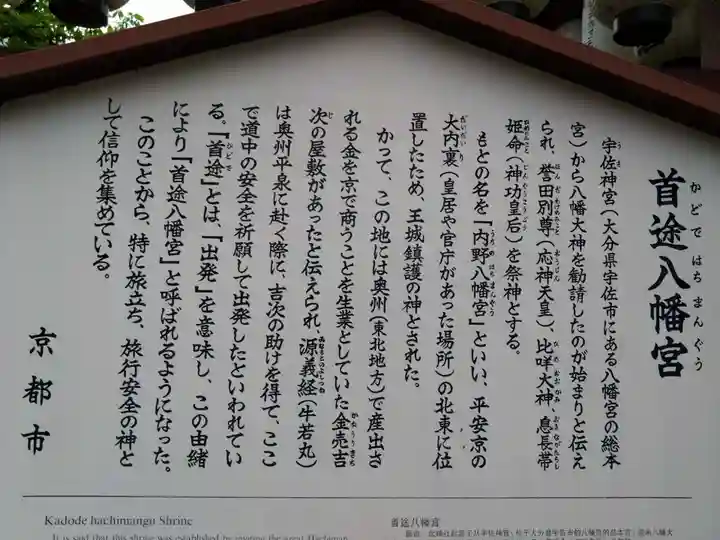 首途八幡宮
かどではちまんぐう
宇佐神宮(大分県宇佐市にある八幡宮の総本
宮)から八幡大神を勧請したのが始まりと伝え
られ、誉田別尊(応神天皇)、比咩大神、息長帯
姫命(神功皇后)を祭神とする。
もとの名を「内野八幡宮」といい、平安京の
大内裏(皇居や官庁があった場所)の北東に位
置したため、王城鎮護の神とされた。
かつて、この地には奥州(東北地方)で産出さ
れる金を京で商うことを生業としていた金売吉
次の屋敷があったと伝えられ、源義経(牛若丸)
は奥州平泉に赴く際に、吉次の助けを得て、ここ
で道中の安全を祈願して出発したといわれてい
る。「首途」とは、「出発」を意味し、この由緒
により「首途八幡宮」と呼ばれるようになった。
このことから、特に旅立ち、旅行安全の神と
して信仰を集めている。
京都市
Kadode hachimangu Shrine
It is said that this shrine was established by
首途八幡宮